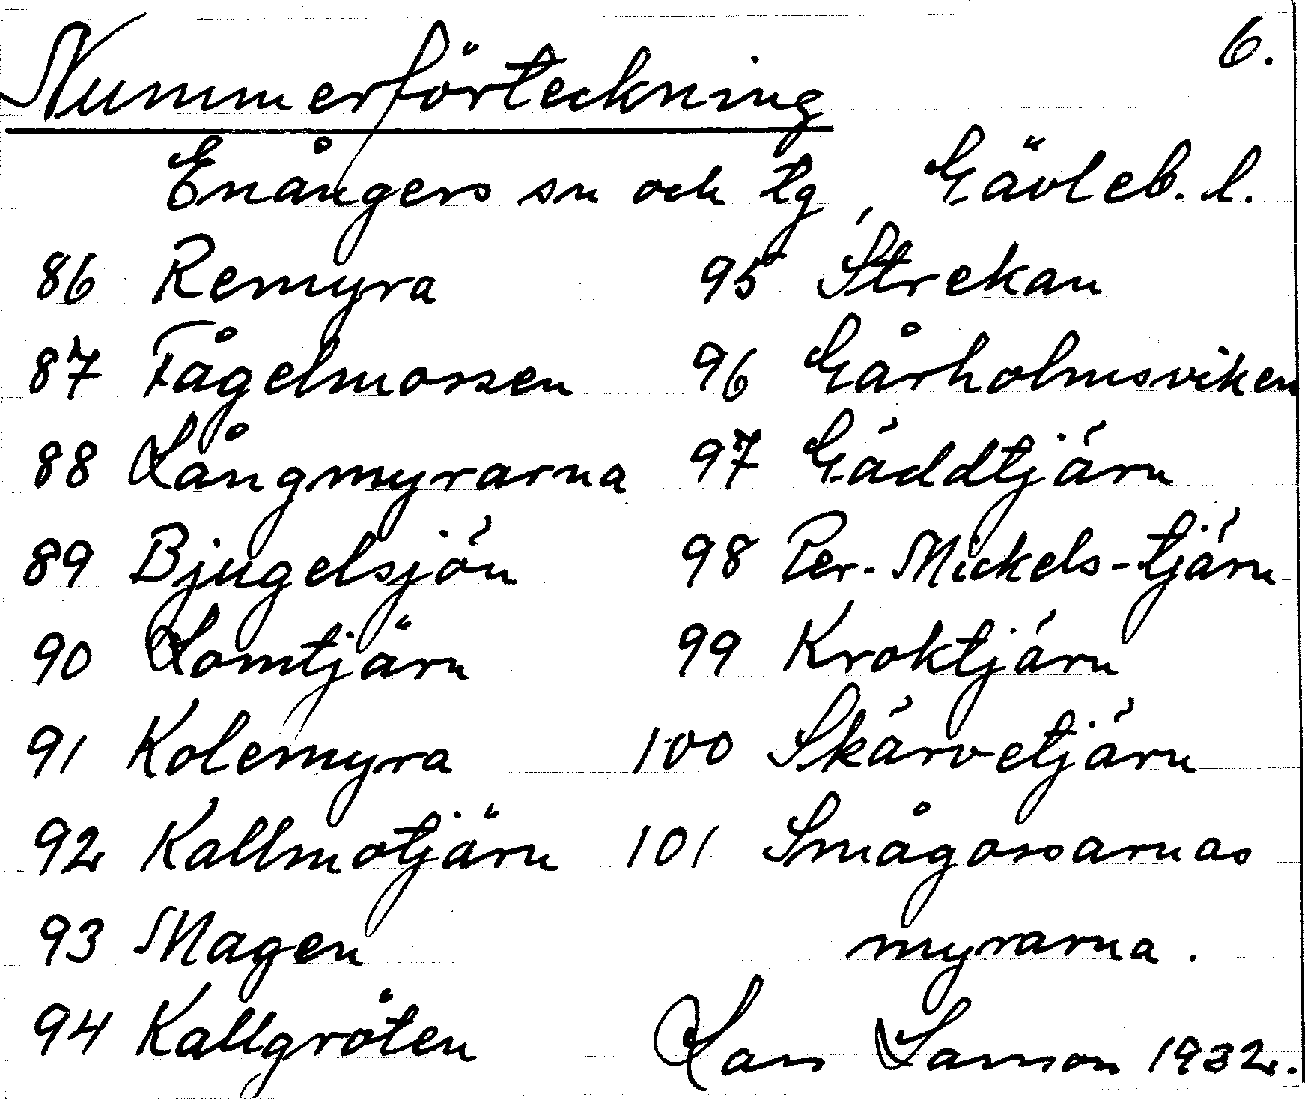 6.
Nummerförteckning
Enångers sn och tg, Gävleb. l.
86 Remyra
87 Fågelmossen
88 Långmyrarna
89 Bjugelsjön
90 Lomtjärn
91 Kolemyra
92 Kallmotjärn
93 Magen
94 Kallgröten
95 Strekan
96 Gårholmsviken
97 Gäddtjärn
98 Per-Mickels-tjärn
99 Kroktjärn
100 Skärvetjärn
101 Smågossarnas
myrarna.
Lars Larsson 1932.